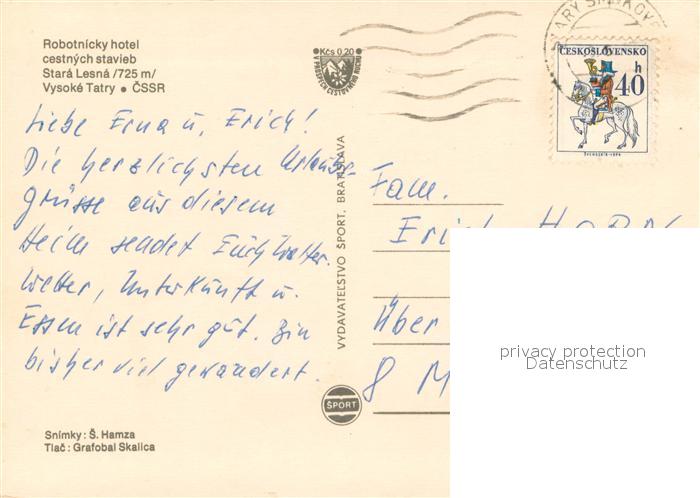 Robotnícky hotel
cestných stavieb
Stará Lesná /725 m/
Vysoké Tatry • ČSSR
Liebe Erna u. Erich!
Die herzlichsten Urlaubs-
grüsse aus diesem
Heim sendet Euch Walter.
Wetter, Unterkunft u.
Essen ist sehr gut. Bin
bisher viel gewandert.
Snímky: Š. Hamza
Tlač: Grafobal Skalica
Kčs 0,20
V PROSPECH CESTOVNÉHO RUCHU
VYDAVATEĽSTVO ŠPORT, BRATISLAVA
ŠPORT
ČESKOSLOVENSKO
40 h
Fam.
Erich HORN
Über
8 M
privacy protection
Datenschutz